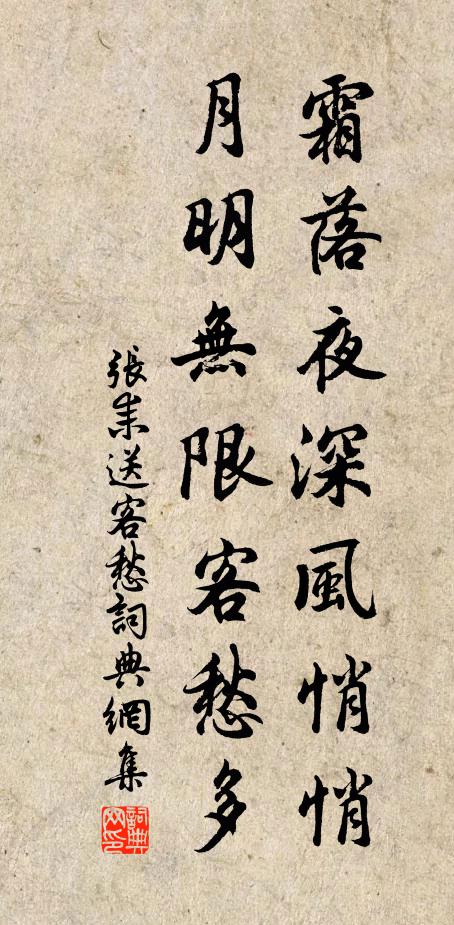 霜落夜深風悄悄
月明無限客愁多
張耒送客愁詞典網集
詞典網印